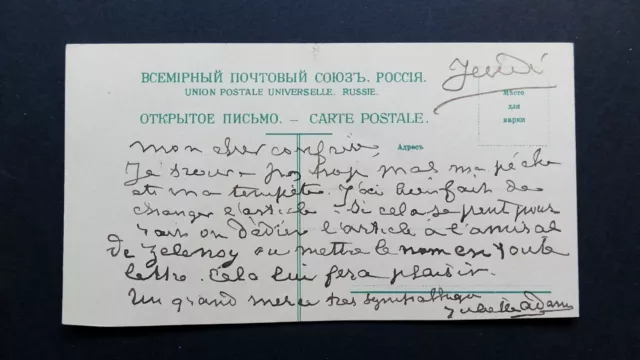 Jeudi
ВСЕМІРНЫЙ ПОЧТОВЫЙ СОЮЗЪ. РОССІЯ.
UNION POSTALE UNIVERSELLE. RUSSIE.
Мѣсто
для
марки
ОТКРЫТОЕ ПИСЬМО. — CARTE POSTALE.
Адресъ
mon cher confrère,
Je trouve pas trop mal ma pêche
et ma tempête. J'ai bien fait de
changer l'article. Si cela se peut pour
on dédier l'article à l'amiral
de Zelenoy ou mettre le nom en toute
lettre. Cela lui fera plaisir.
Un grand merci très sympathique
Juliette Adam